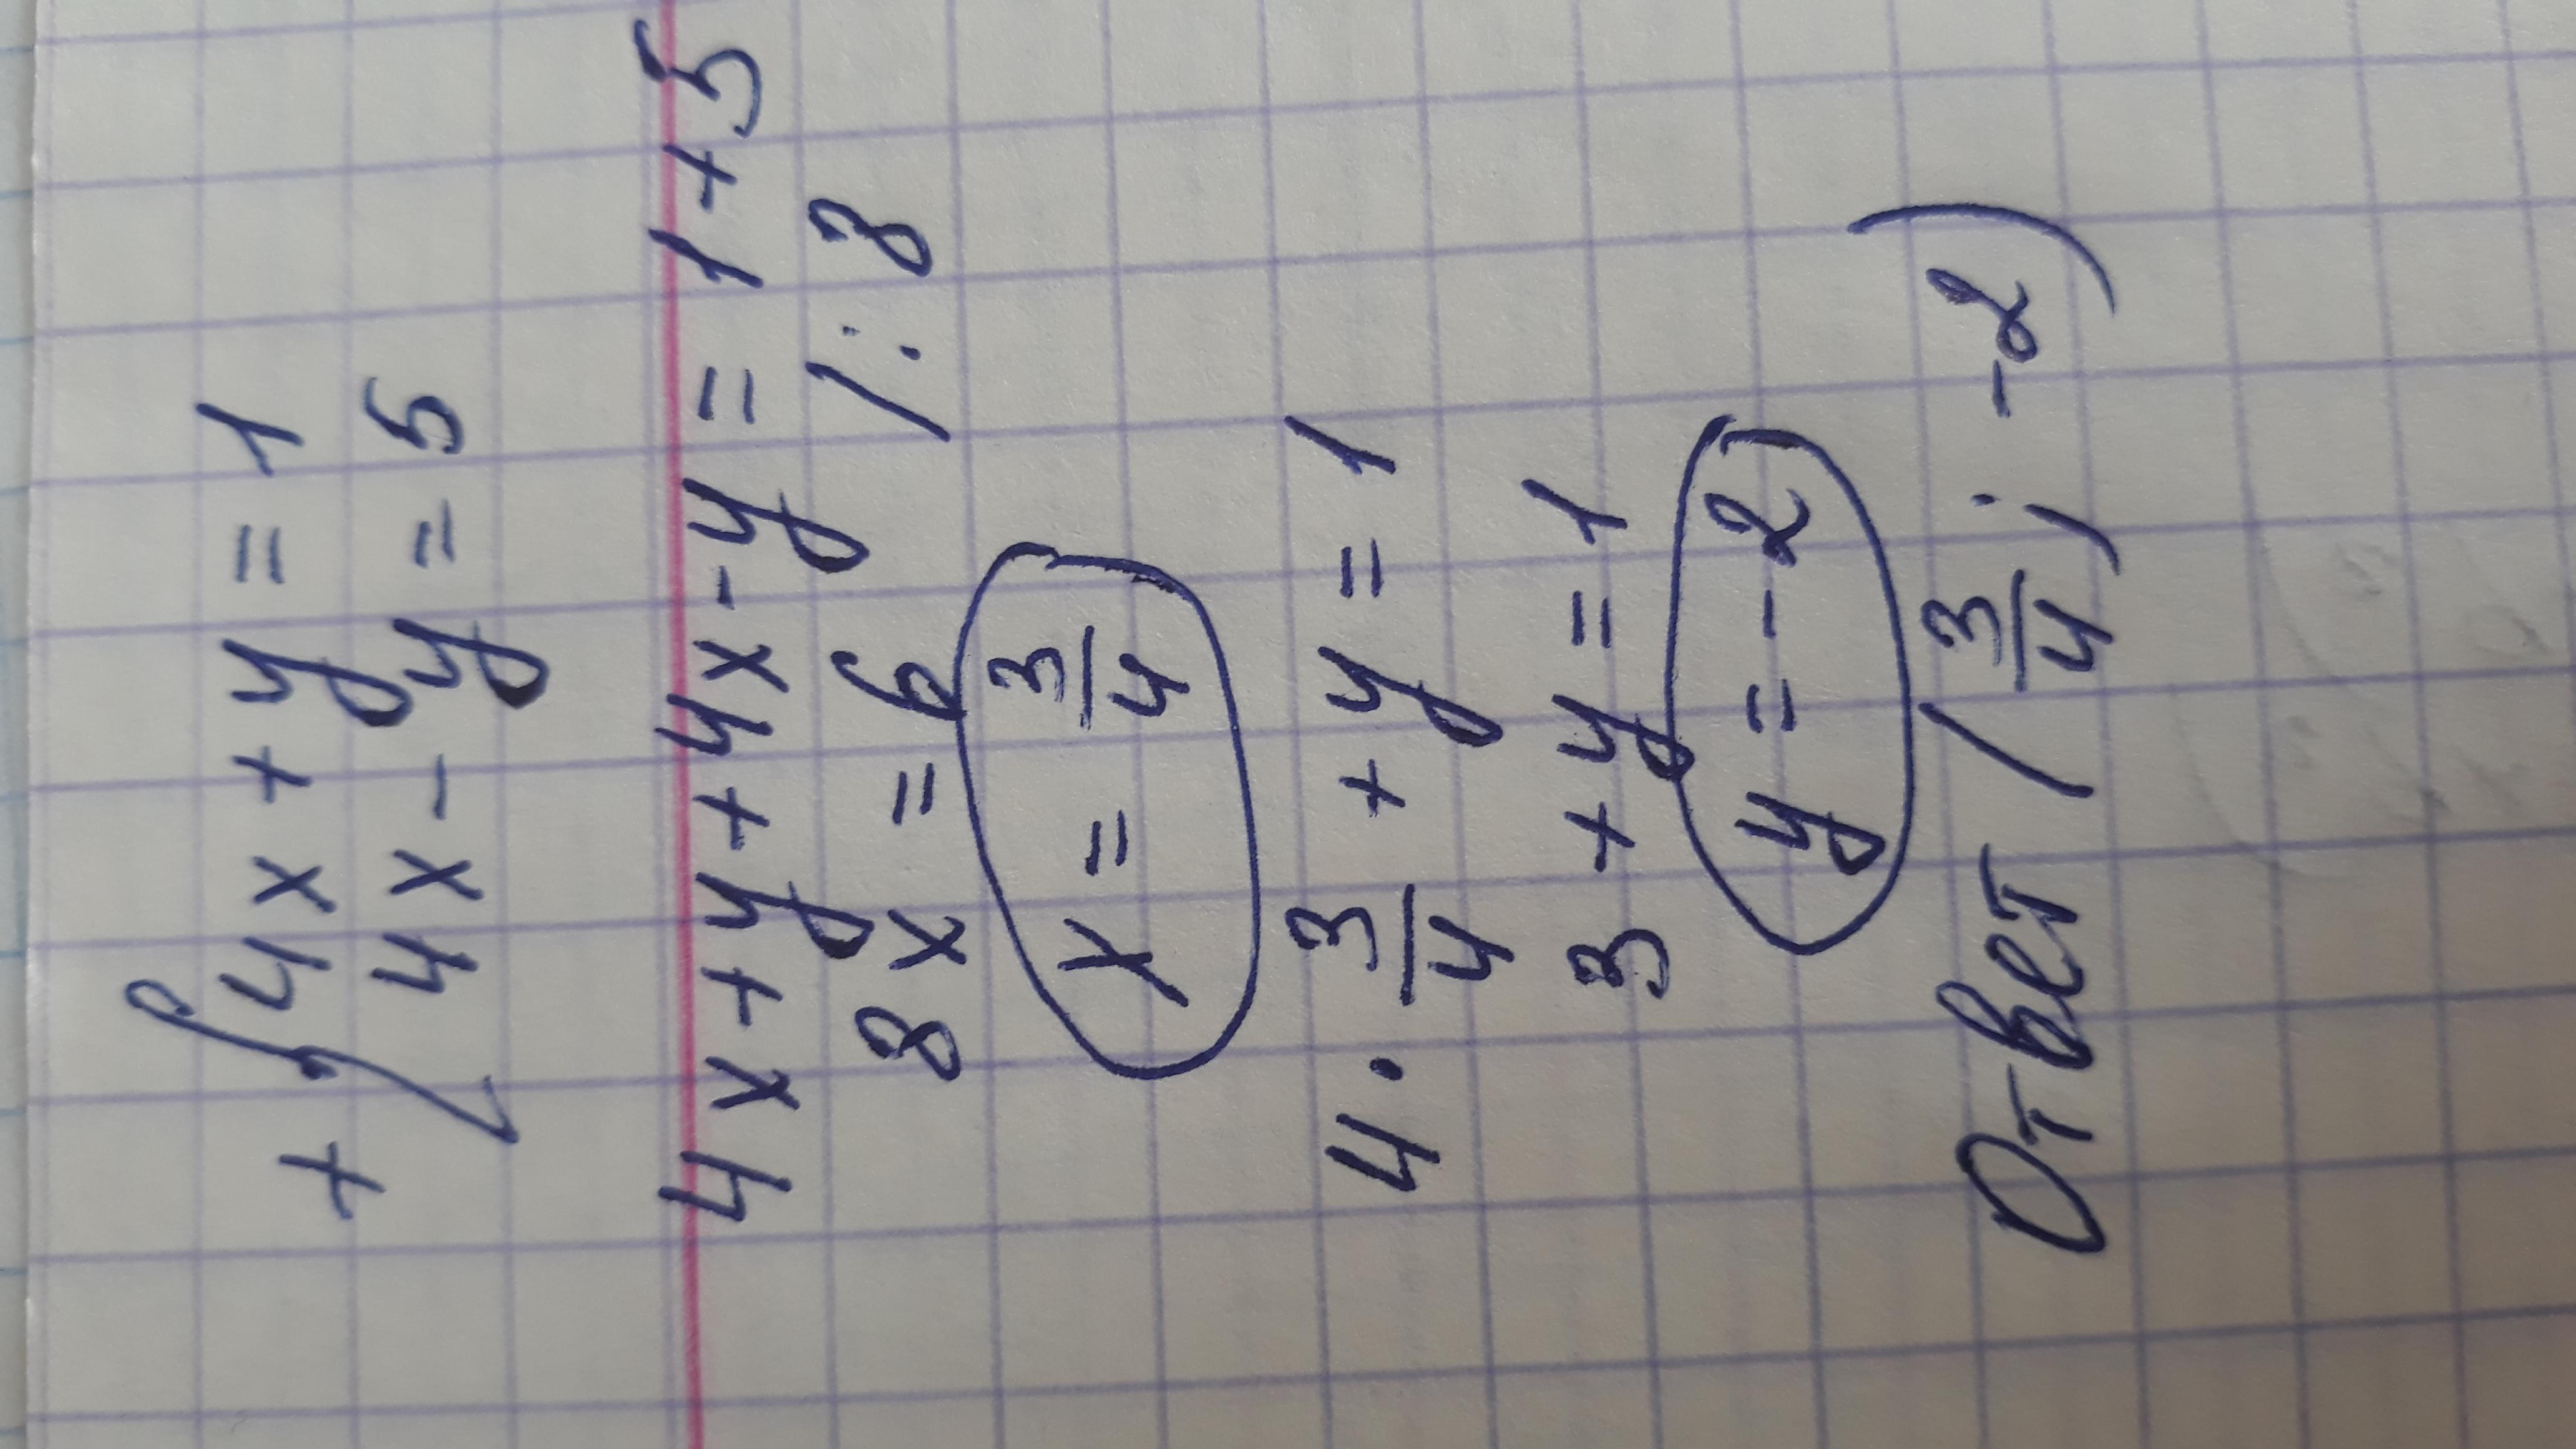 + { 4x + y = 1
4x - y = 5
4x + y + 4x - y = 1 + 5
8x = 6 / : 8
x = 3/4
4 · 3/4 + y = 1
3 + y = 1
y = -2
Ответ (3/4; -2)